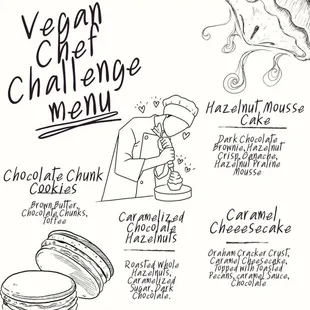 Vegan
Chef
Challenge
menu
Hazelnut Mousse
Cake
Dark Chocolate
Brownie, Hazelnut
Crisp, Ganache,
Hazelnut Praline
Mousse
Chocolate Chunk
Cookies
Brown Butter,
Chocolate Chunks,
Toffee
Caramelized
Chocolate
Hazelnuts
Roasted Whole
Hazelnuts,
Caramelized
Sugar, Dark
Chocolate.
Caramel
Cheeesecake
Graham Cracker Crust,
Caramel Cheesecake,
Topped with Toasted
Pecans, Caramel Sauce,
Chocolate